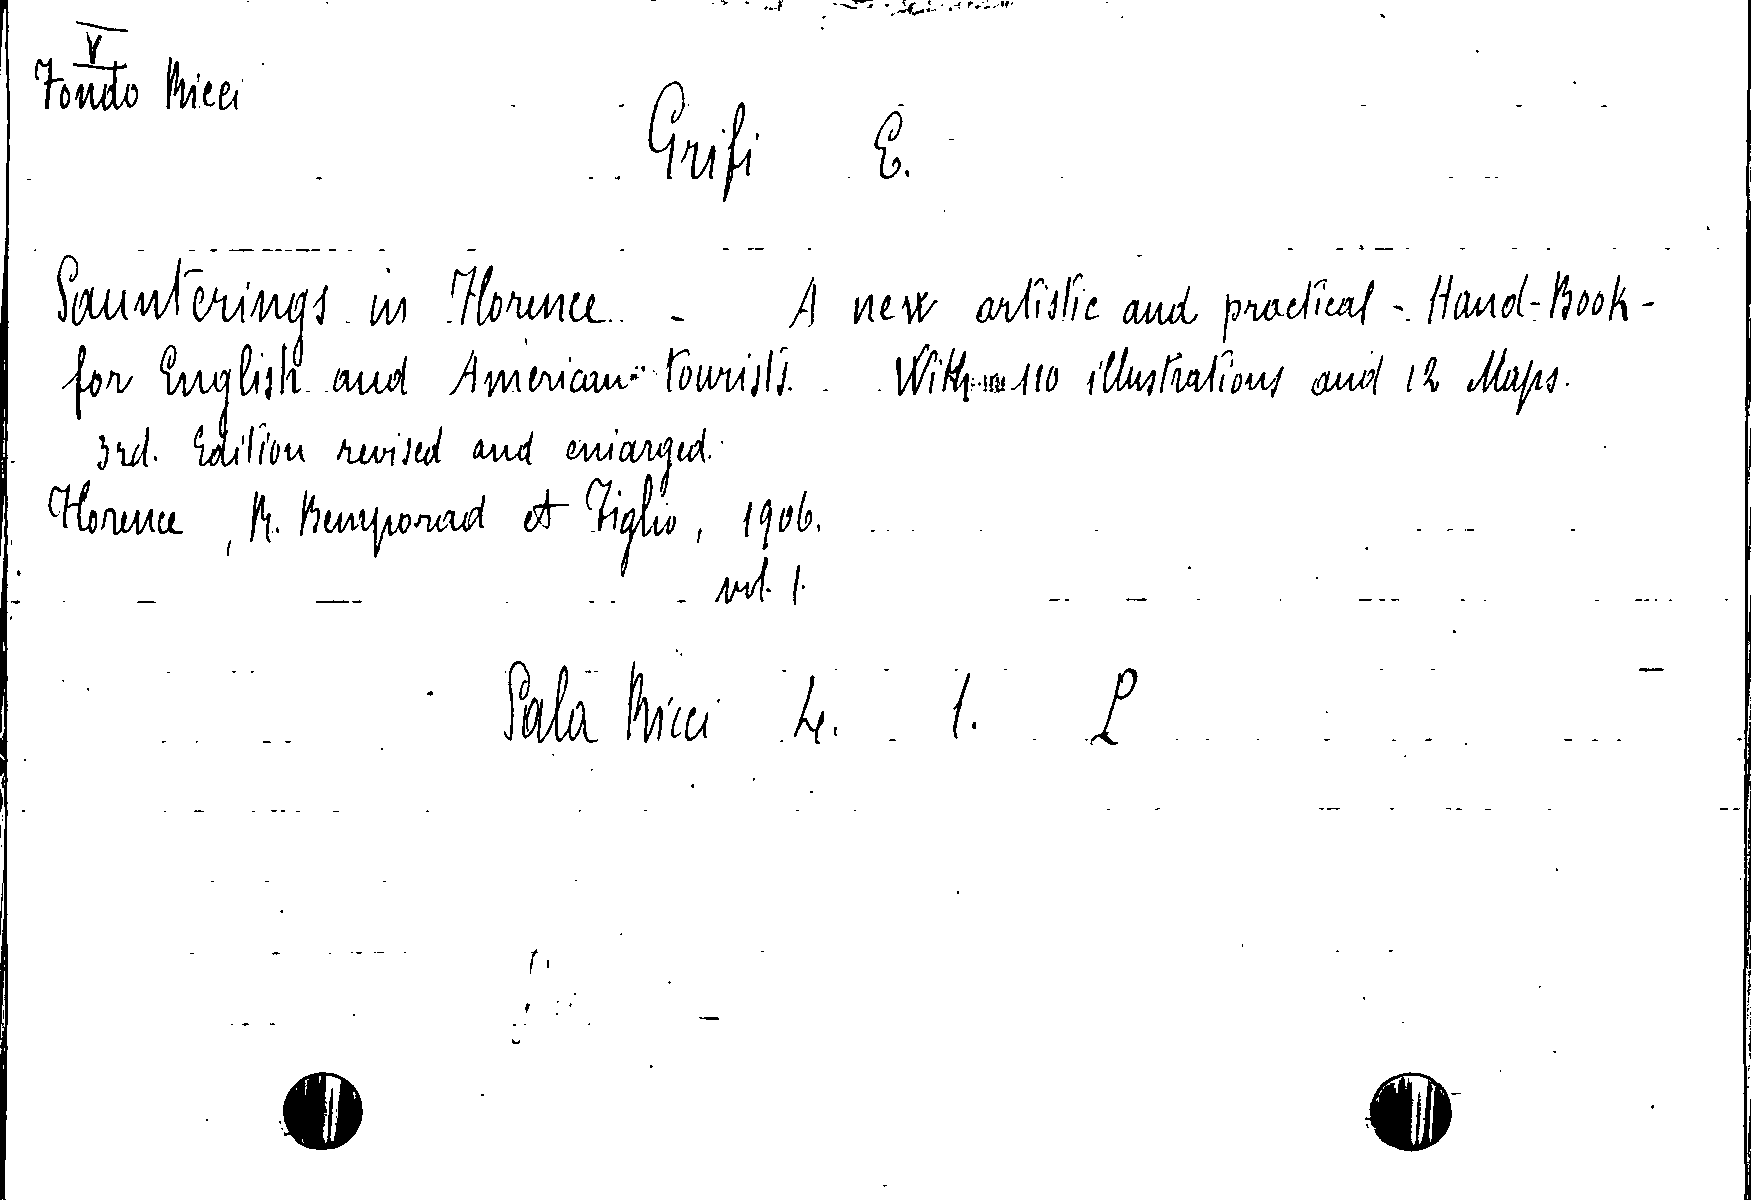 V
Fondo Ricci
Grifi E.
Saunterings in Florence - A new artistic and practical - Hand-Book -
for English and American tourists. With 110 illustrations and 12 Maps.
3rd. Edition revised and enlarged.
Florence, R. Bemporad et Figlio, 1906.
vol. 1.
Sala Ricci 4. 1. L